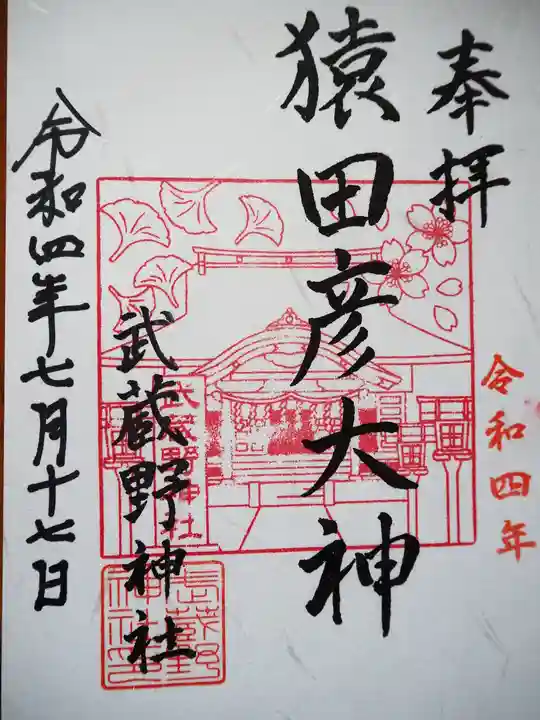 奉拝
令和四年
猿田彦大神
武蔵野神社
武蔵野神社
令和四年七月十七日